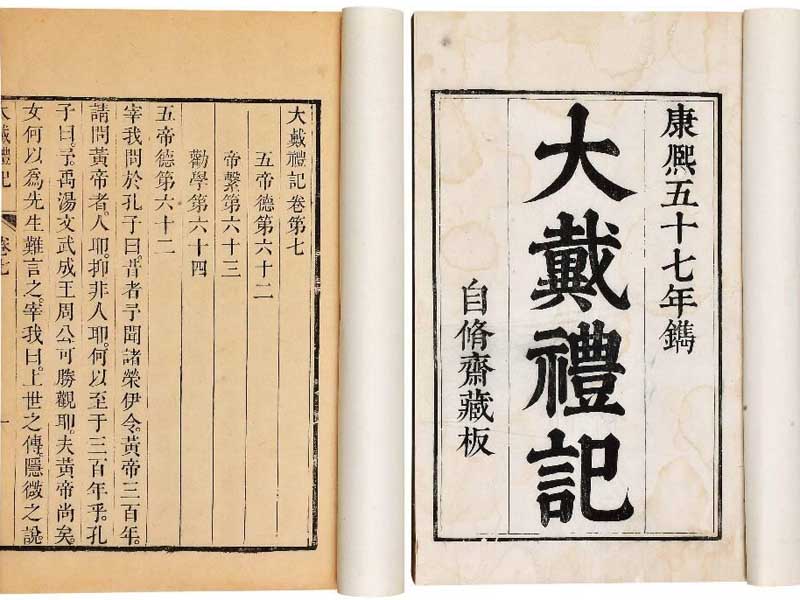 康熙五十七年鐫
大戴禮記
自脩齋藏板
大戴禮記卷第七
五帝德第六十二
帝繫第六十三
勸學第六十四
五帝德第六十二
宰我問於孔子曰。昔者予聞諸榮伊令。黃帝三百年。
請問黃帝者。人耶。抑非人耶。何以至于三百年乎。孔
子曰。予。禹湯文武成王周公。可勝觀耶。夫黃帝尚矣。
女何以爲先生難言之。宰我曰。上世之傳。隱微之說。
大戴禮記 卷七 一